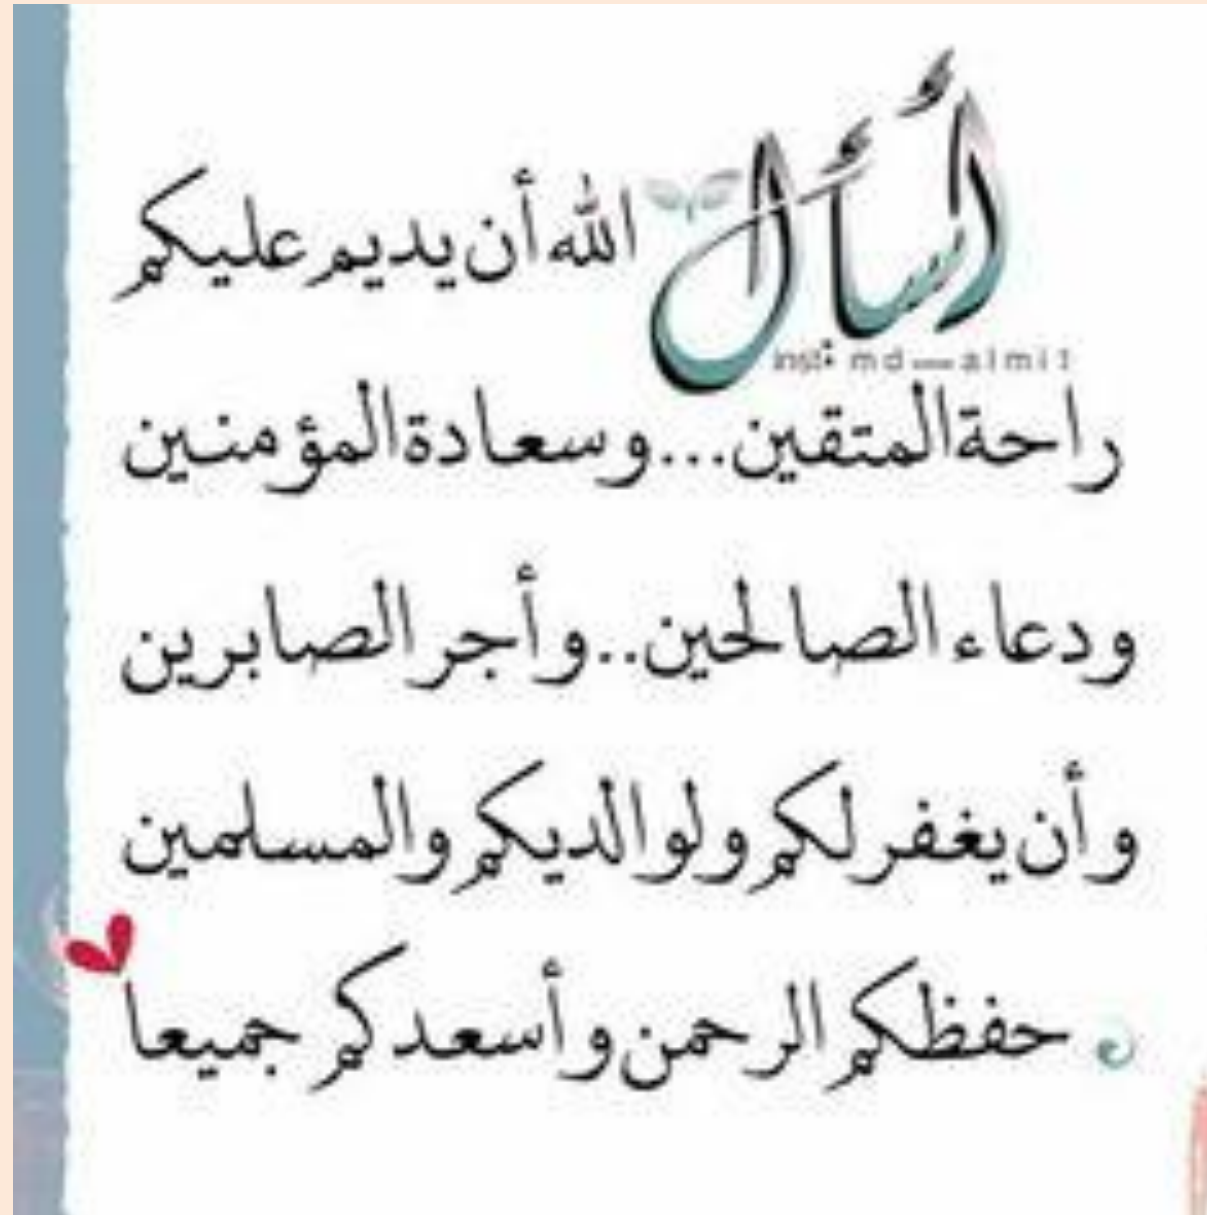 أسأل الله أن يديم عليكم
inst: md_almit
راحة المتقين...وسعادة المؤمنين
ودعاء الصالحين..وأجر الصابرين
وأن يغفر لكم ولوالديكم والمسلمين
حفظكم الرحمن وأسعدكم جميعا